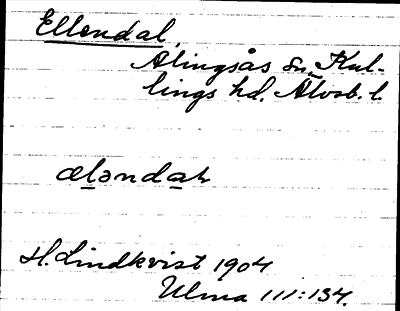 Ellendal.
Alingsås sn, Kul-
lings hd. Älvsb. l.
æləndaḷ
H. Lindkvist 1904
Ulma 111:134.